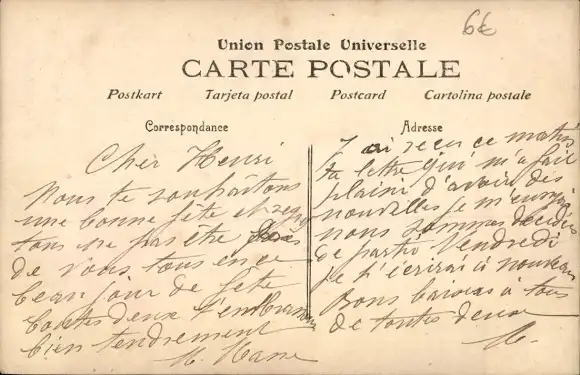 6€
Union Postale Universelle
CARTE POSTALE
Postkart Tarjeta postal Postcard Cartolina postale
Correspondance
Adresse
Cher Henri
Nous te souhaitons
une bonne fête et
tous ne pas être près
de vous tous en ce
beau jour de fête
toutes deux t'embrassons
bien tendrement
M.
J'ai recu ce matin
ta lettre qui m'a fait
plaisir d'avoir des
nouvelles je
nous sommes décidés
de partir Vendredi
je t'écrirai à nouveau
Bons baisers à tous
de toutes deux
M.